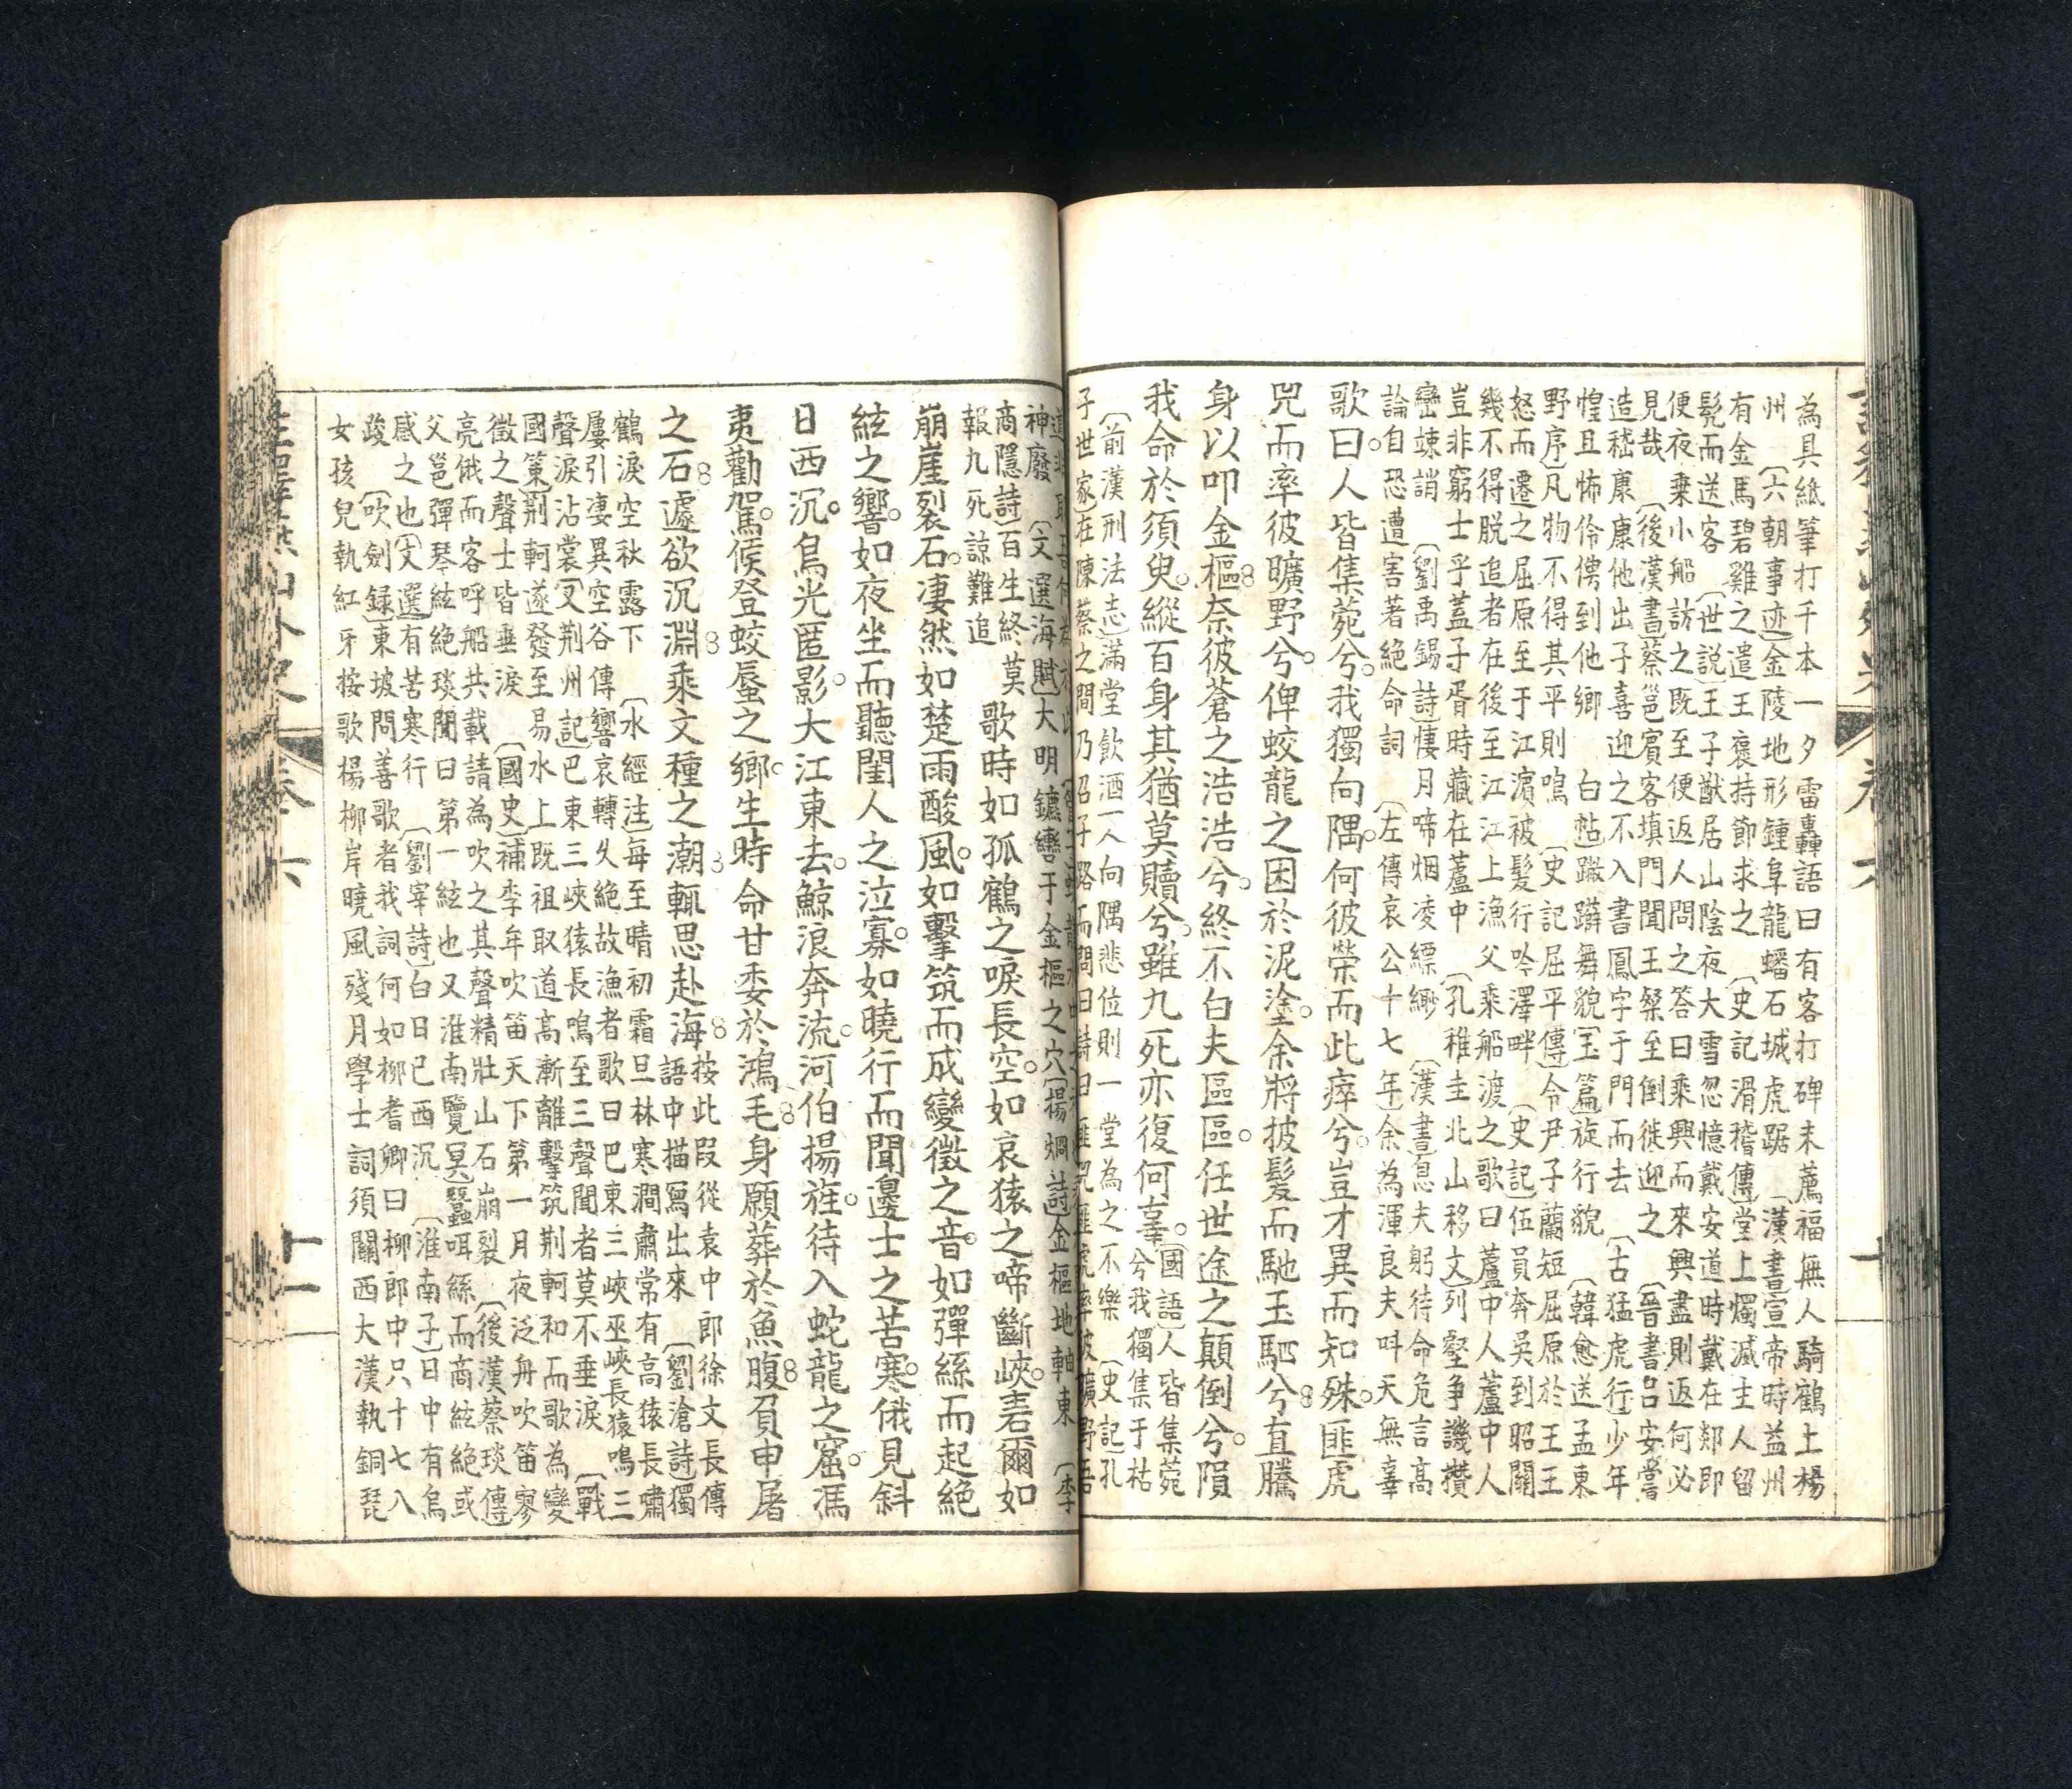 為具紙筆打千本一夕雷轟語曰有客打碑未薦福無人騎鶴上楊
州 〔六朝事迹〕金陵地形鍾阜龍蟠石城虎踞 〔漢書〕宣帝時益州
有金馬碧雞之遣王褒持節求之 〔史記滑稽傳〕堂上燭滅主人留
髡而送客 〔世説〕王子猷居山陰夜大雪忽憶戴安道時戴在郯即
便夜乗小船訪之既至便返人問之答曰乘興而來興盡則返何必
見哉 〔後漢書〕蔡邕賓客填門聞王粲至倒徙迎之 〔晉書〕呂安嘗
造嵇康康他出子喜迎之不入書鳳字于門而去 〔古猛虎行〕少年
惶且怖伶俜到他鄉 白帖〕蹴躋舞貌〔玉篇〕旋行貌 〔韓愈送孟東
野序〕凡物不得其平則鳴 〔史記屈平傳〕令尹子蘭短屈原於王王
怒而遷之屈原至于江濵被髪行吟澤畔 〔史記〕伍員奔吳到昭關
幾不得脱追者在後至江江上漁父乘船渡之歌曰蘆中人蘆中人
豈非窮士乎蓋子胥時藏在蘆中 〔孔稚圭北山移文〕列壑争譏攢
巒竦誚 〔劉禹錫詩〕悽月啼烟凌縹緲 〔漢書〕息夫躬待命危言高
論自恐遭害著絶命詞 〔左傳哀公十七年〕余為渾良夫呌天無辜
歌曰。人皆集菀兮。我獨向隅。何彼榮而此瘁兮。豈才異而知殊。匪虎
兕而率彼曠野兮。俾蛟龍之困於泥塗。余將披髪而馳玉駟兮。直騰
身以叩金樞。奈彼蒼之浩浩兮。終不白夫區區。任世途之顛倒兮。隕
我命於須臾。縱百身其猶莫贖兮。雖九死亦復何辜。〔國語〕人皆集菀
兮我獨集于枯
〔前漢刑法志〕滿堂飲酒一人向隅悲位則一堂為之不樂 〔史記〕孔
子世家〕在陳蔡之間乃召子路而問曰詩曰匪兕匪虎率彼曠野吾
卷六
十
神廢 〔文選海賦〕大明鑣轡于金樞之穴〔楊烱詩〕金樞地軸東 〔李
商隱詩〕百生終莫
報九死諒難追
歌時如孤鶴之唳長空。如哀猿之啼斷峽。砉爾如
崩崖裂石。凄然如楚雨酸風。如擊筑而成變徵之音。如彈絲而起絶
絃之響。如夜坐而聽閨人之泣寡。如曉行而聞邊士之苦寒。俄見斜
日西沉。烏光匿影。大江東去。鯨浪奔流。河伯揚旌。待入蛇龍之窟。馮
夷勸駕。候登蛟蜃之鄉。生時命甘委於鴻毛。身願葬於魚腹。負申屠
之石。遽欲沉淵。乘文種之潮。輒思赴海。按此叚從袁中郎徐文長傳
語中描寫出來 〔劉滄詩〕獨
鶴淚空秋露下 〔水經注〕每至晴初霜旦林寒澗肅常有高猿長嘯
屢引凄異空谷傳響哀轉久絶故漁者歌曰巴東三峽巫峽長猿鳴三
聲淚沾裳〔又荆州記〕巴東三峽猿長鳴至三聲聞者莫不垂淚 〔戰
國策〕荆軻遂發至易水上既祖取道高漸離擊筑荆軻和而歌為變
徵之聲士皆垂淚 〔國史補〕李牟吹笛天下第一月夜泛舟吹笛寥
亮俄而客呼船共載請為吹之其聲精壯山石崩裂 〔後漢蔡琰傳〕
父邕彈琴絃絶琰聞曰第一絃也又淮南覽冥〕蠶咡絲而商絃絶或
感之也〔文選〕有苦寒行 〔劉宰詩〕白日已西沉 〔淮南子〕日中有烏
踆 〔吹劍録〕東坡問善歌者我詞何如柳耆卿曰柳郎中只十七八
女孩兒執紅牙按歌楊柳岸曉風殘月學士詞須關西大漢執銅琵
卷六
十一